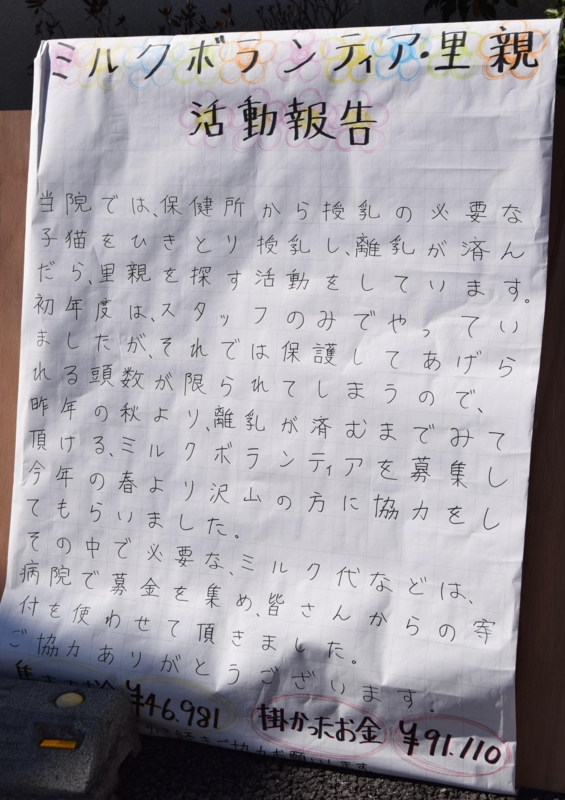 ミルクボランティア・里親
活動報告
当院では、保健所から授乳の必要な
子猫をひきとり授乳し、離乳が済ん
だら、里親を探す活動をしています。
初年度は、スタッフのみでやってい
ましたが、それでは保護してあげら
れる頭数が限られてしまうので、
昨年の秋より、離乳が済むまでみて
頂ける、ミルクボランティアを募集し
今年の春より沢山の方に協力をし
てもらいました。
その中で必要な、ミルク代などは、
病院で募金を集め、皆さんからの寄
付を使わせて頂きました。
ご協力ありがとうございます。
¥46.981 掛かったお金 ¥91.110
ご協力お願いします